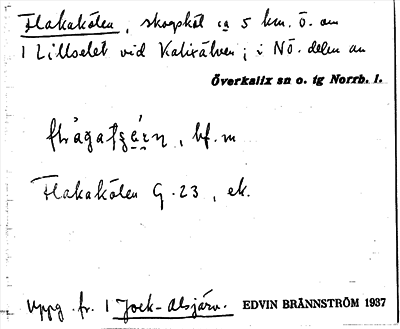 Flakakölen, skogsköl ca 5 km. ö. om
1 Lillselet vid Kalixälven; i NÖ. delen av
Överkalix sn o. tg Norrb. l.
bf. m
Flakakölen G. 23, ek.
Uppg. fr. 1 Jock-Alsjärv. EDVIN BRÄNNSTRÖM 1937